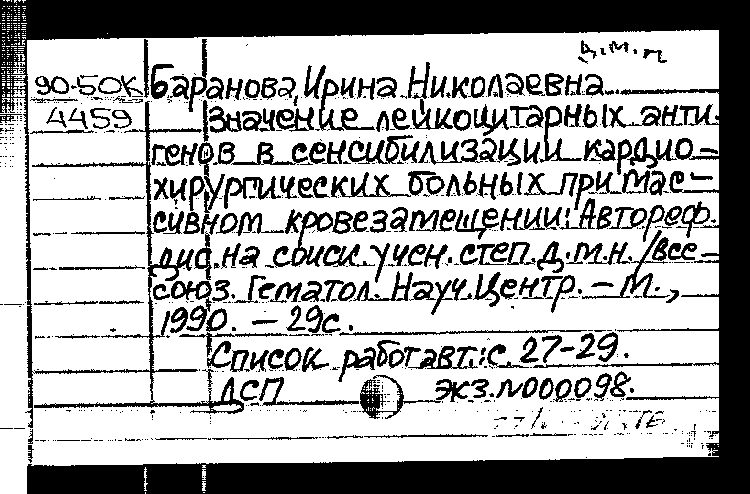 д.м.н
90-50К Баранова, Ирина Николаевна
4459 Значение лейкоцитарных анти-
генов в сенсибилизации кардио-
хирургических больных при мас-
сивном кровезамещении: Автореф.
дис. на соиск. учен. степ. д.м.н. /Все-
союз. Гематол. Науч. Центр. – М.,
1990. – 29с.
Список работ авт.: с. 27-29.
ДСП экз. №000098.